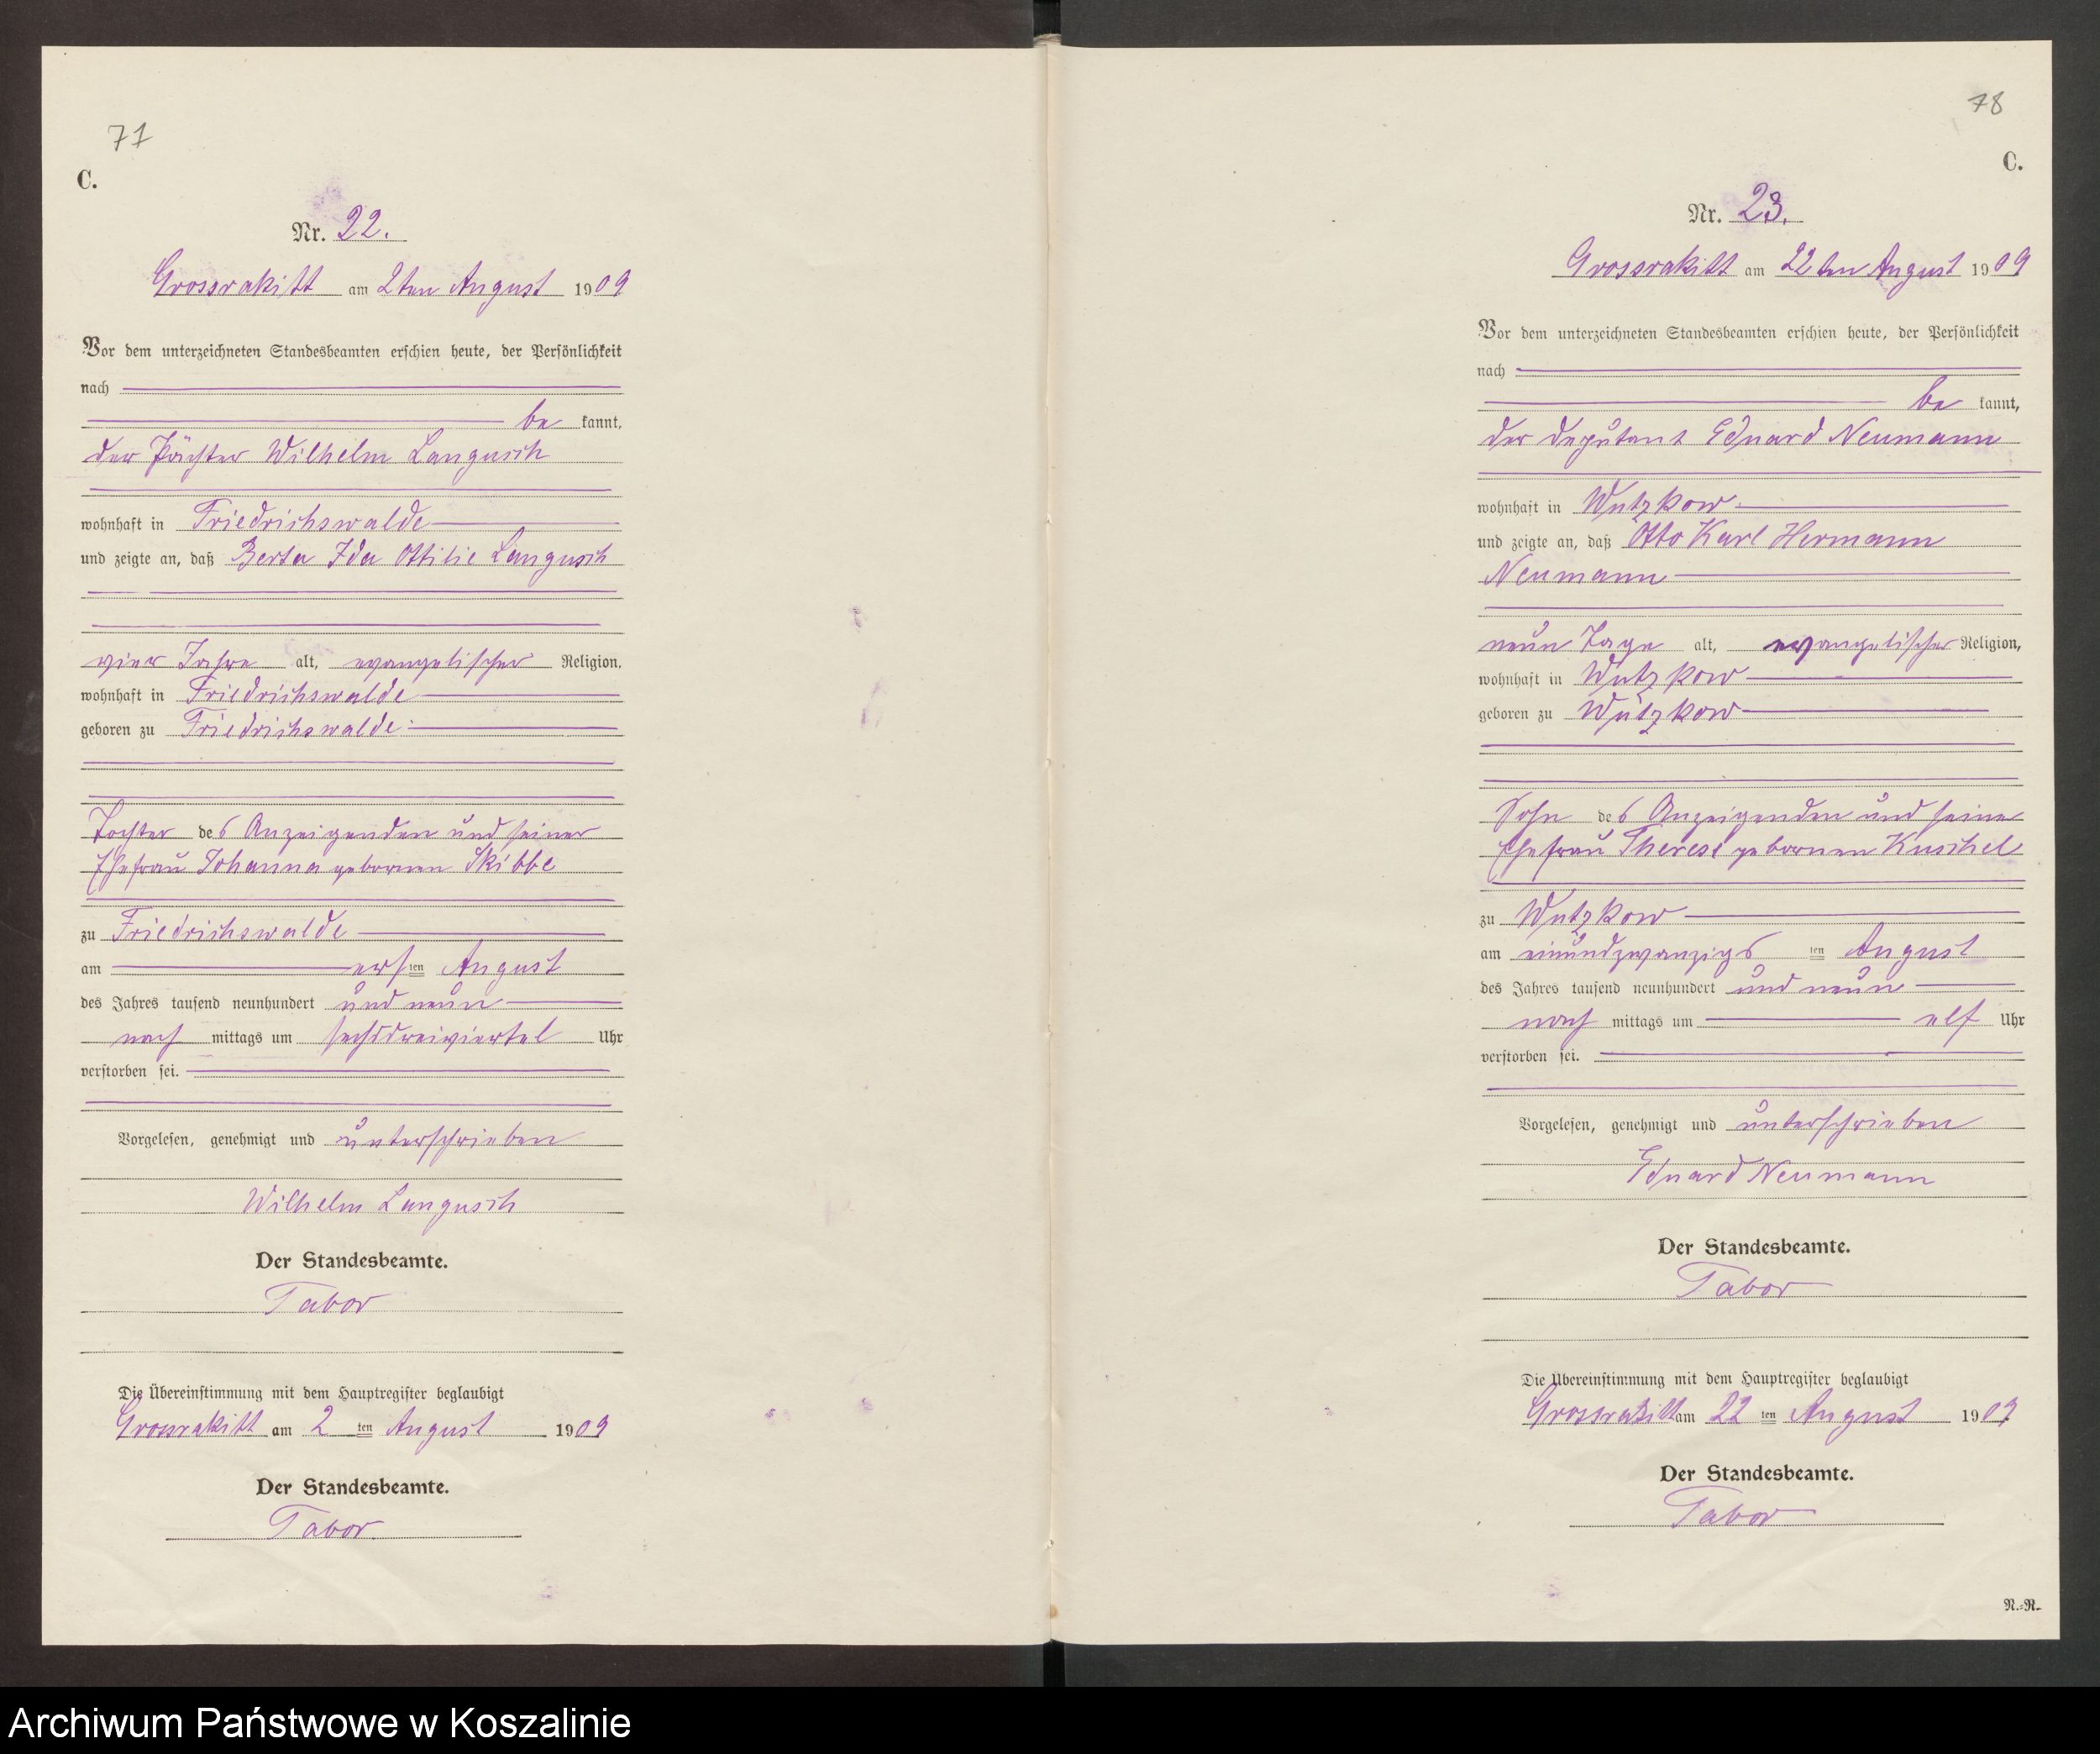 77
C.
Nr. 22.
Grossrakitt am 2ten August 1909
Vor dem unterzeichneten Standesbeamten erschien heute, der Persönlichkeit
nach
be kannt,
der Pächter Wilhelm Langusch
wohnhaft in Friedrichswalde
und zeigte an, daß Berta Ida Ottilie Langusch
vier Jahre alt, evangelischer Religion,
wohnhaft in Friedrichswalde
geboren zu Friedrichswalde
Tochter des Anzeigenden und seiner
Ehefrau Johanna gebornen Skibbe
zu Friedrichswalde
am ersten August
des Jahres tausend neunhundert und neun
nach mittags um sechsdreiviertel Uhr
verstorben sei.
Vorgelesen, genehmigt und unterschrieben
Wilhelm Langusch
Der Standesbeamte.
Tabor
Die Übereinstimmung mit dem Hauptregister beglaubigt
Grossrakitt am 2 ten August 1909
Der Standesbeamte.
Tabor
78
C.
Nr. 23.
Grossrakitt am 22ten August 1909
Vor dem unterzeichneten Standesbeamten erschien heute, der Persönlichkeit
nach
be kannt,
der Deputant Eduard Neumann
wohnhaft in Wutzkow
und zeigte an, daß Otto Karl Hermann
Neumann
neun Tage alt, evangelischer Religion,
wohnhaft in Wutzkow
geboren zu Wutzkow
Sohn des Anzeigenden und seiner
Ehefrau Therese gebornen Kuschel
zu Wutzkow
am einundzwanzigs ten August
des Jahres tausend neunhundert und neun
nach mittags um elf Uhr
verstorben sei.
Vorgelesen, genehmigt und unterschrieben
Eduard Neumann
Der Standesbeamte.
Tabor
Die Übereinstimmung mit dem Hauptregister beglaubigt
Grossrakitt am 22 ten August 1909
Der Standesbeamte.
Tabor
N.-R.
Archiwum Państwowe w Koszalinie